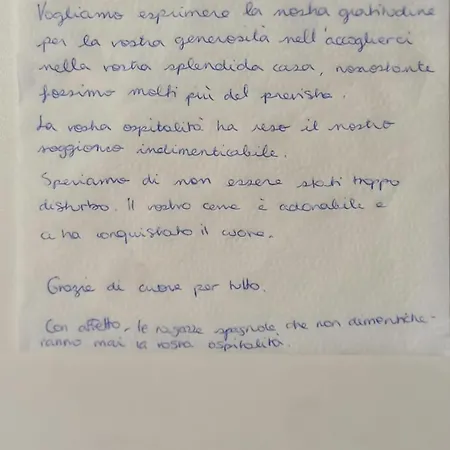 Vogliamo esprimere la nostra gratitudine
per la vostra generosità nell'accoglierci
nella vostra splendida casa, nonostante
fossimo molti più del previsto.
La vostra ospitalità ha reso il nostro
soggiorno indimenticabile.
Speriamo di non essere stati troppo
disturbo. Il vostro cane è adorabile e
ci ha conquistato il cuore.
Grazie di cuore per tutto.
Con affetto, le ragazze spagnole che non dimentiche-
ranno mai la vostra ospitalità.